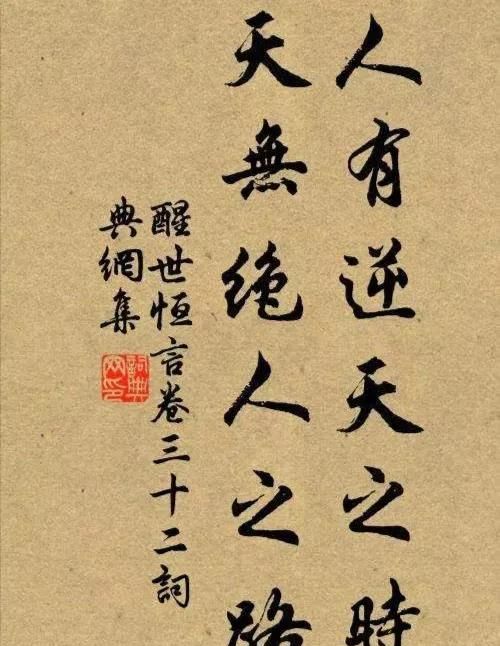 人有逆天之時
天無绝人之路
醒世恒言卷三十二詞
典網集
詞典网印